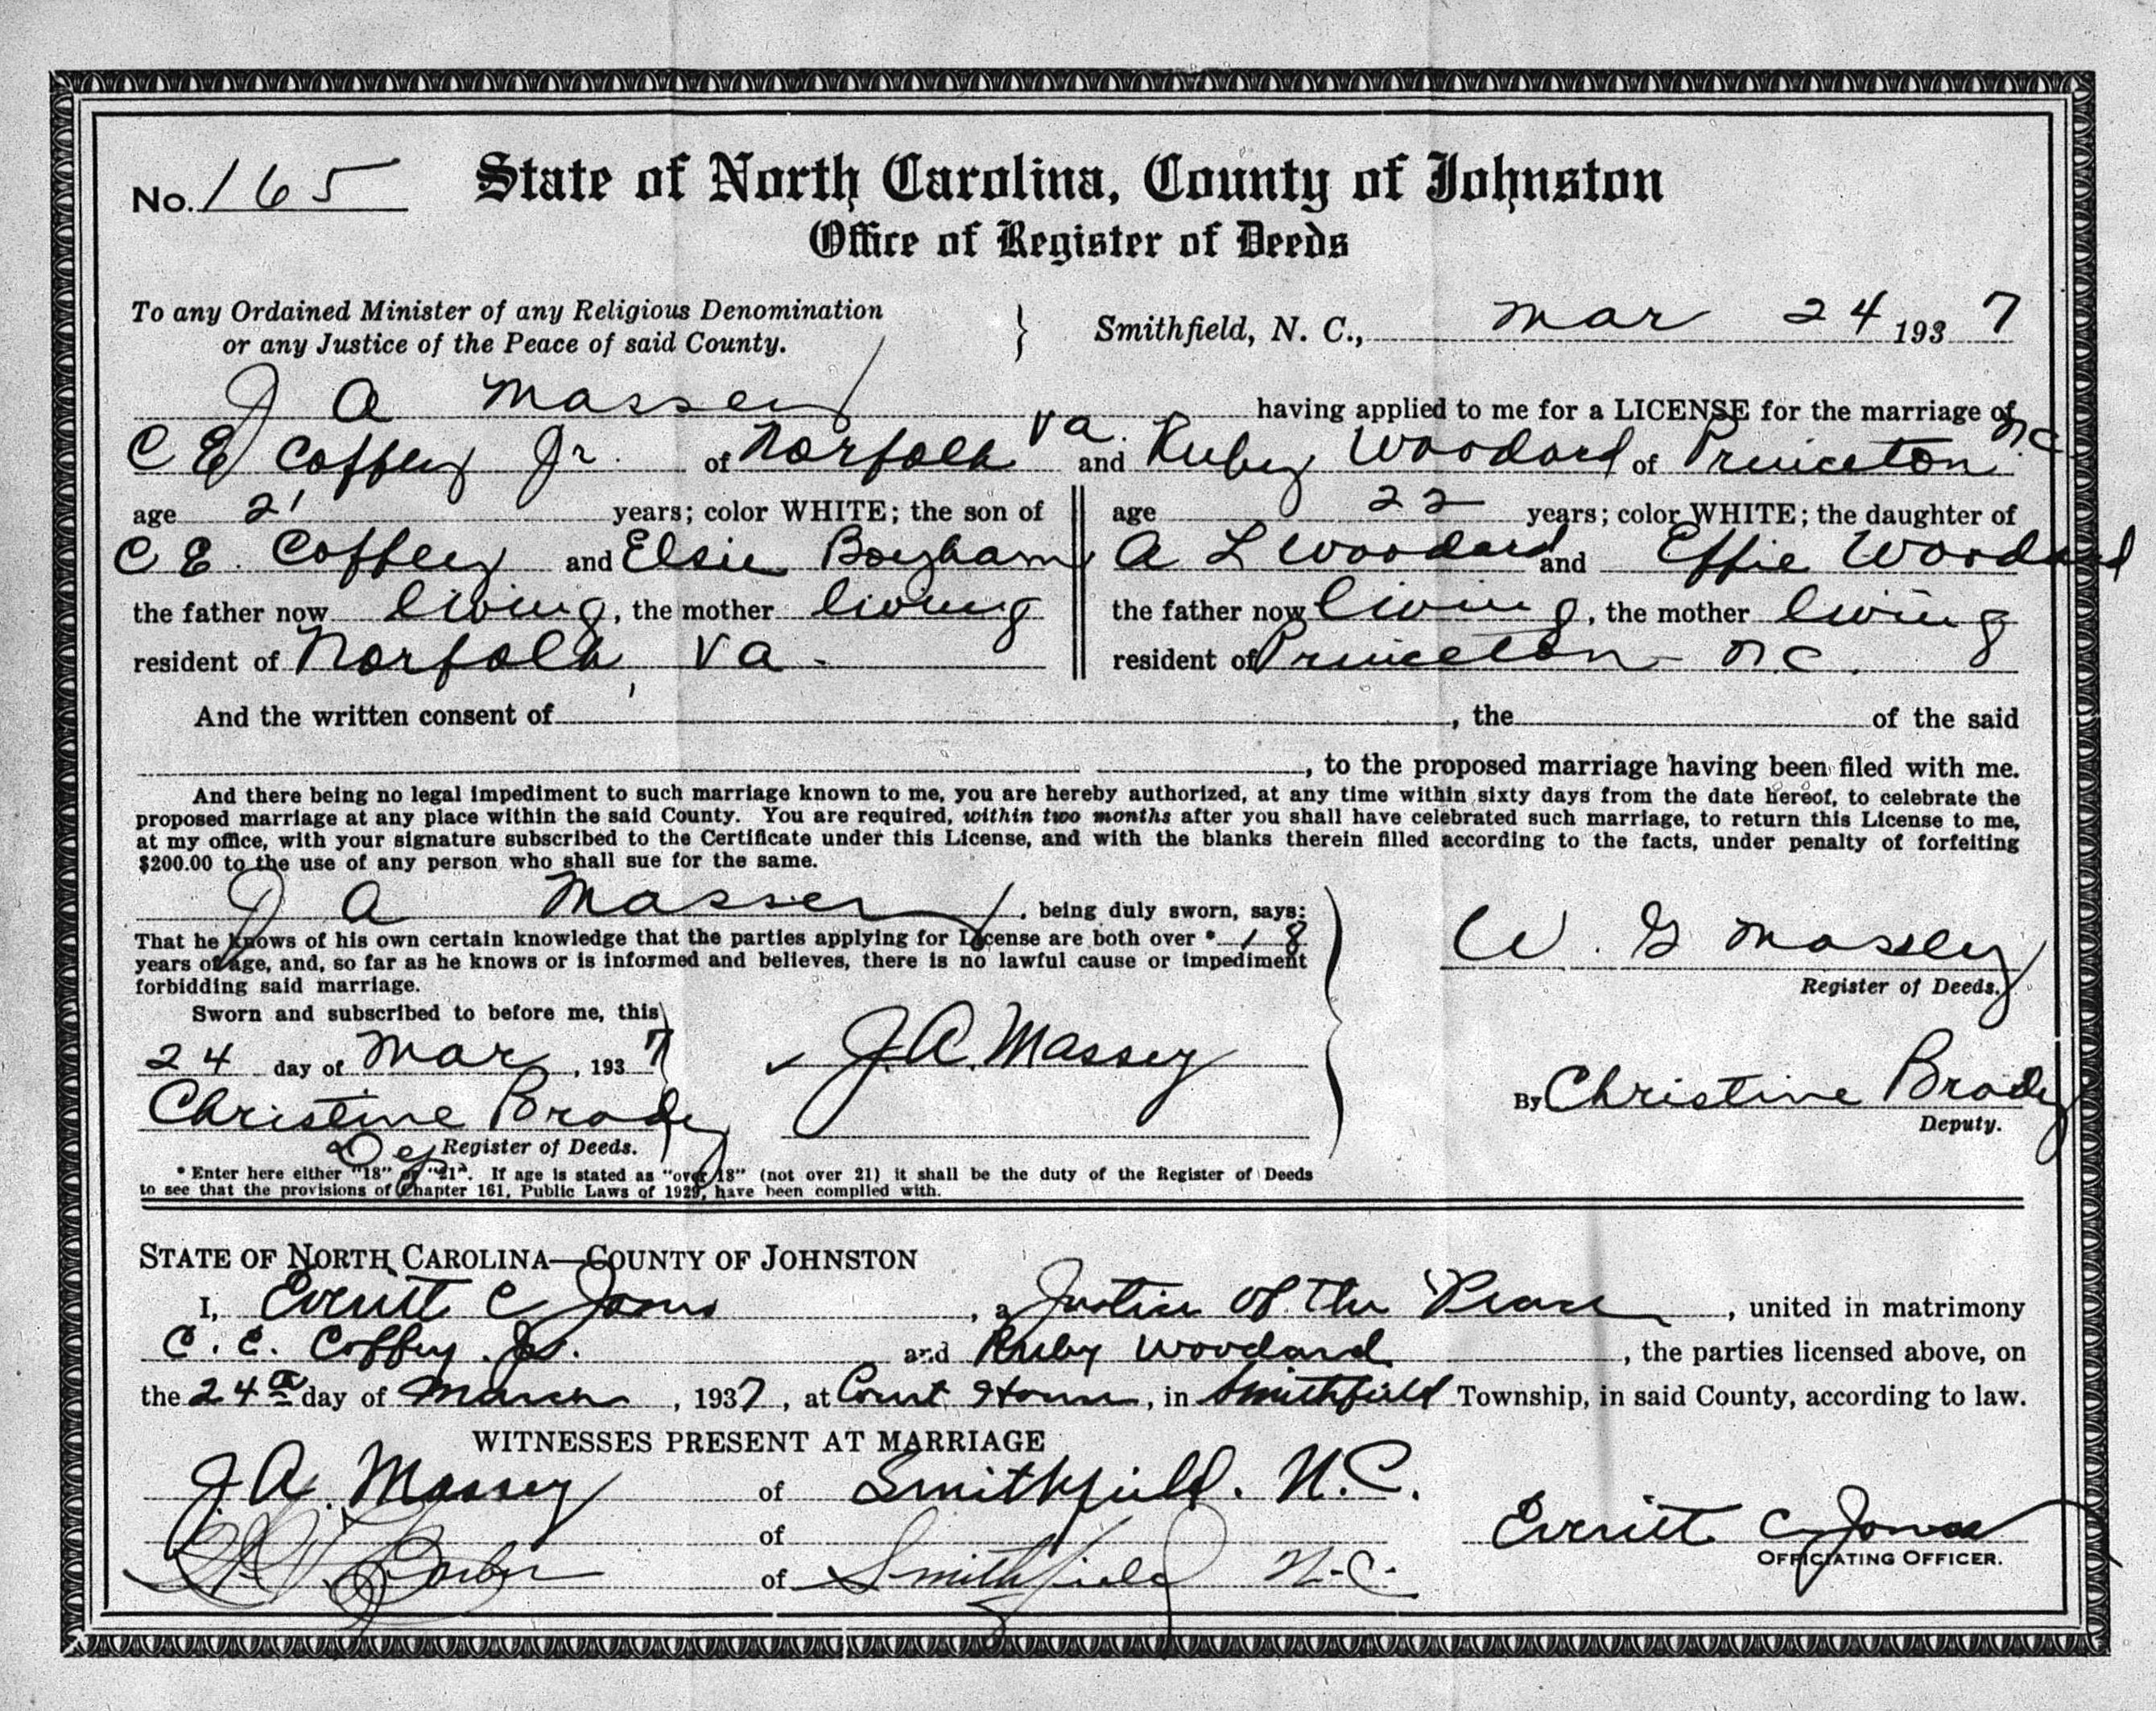 No. 165 State of North Carolina, County of Johnston
Office of Register of Deeds
To any Ordained Minister of any Religious Denomination
or any Justice of the Peace of said County. } Smithfield, N. C., Mar 24 1937
J A Massey having applied to me for a LICENSE for the marriage of
C E Coffey Jr. of Norfolk Va. and Ruby Woodard of Princeton N.C.
age 21 years; color WHITE; the son of
C E. Coffey and Elsie
the father now living, the mother living
resident of Norfolk, Va.
age 22 years; color WHITE; the daughter of
A L Woodard and Effie Woodard
the father now living, the mother living
resident of Princeton N.C.
And the written consent of , the of the said
, to the proposed marriage having been filed with me.
And there being no legal impediment to such marriage known to me, you are hereby authorized, at any time within sixty days from the date hereof, to celebrate the
proposed marriage at any place within the said County. You are required, within two months after you shall have celebrated such marriage, to return this License to me,
at my office, with your signature subscribed to the Certificate under this License, and with the blanks therein filled according to the facts, under penalty of forfeiting
$200.00 to the use of any person who shall sue for the same.
J A Massey, being duly sworn, says:
That he knows of his own certain knowledge that the parties applying for License are both over * 18
years of age, and, so far as he knows or is informed and believes, there is no lawful cause or impediment
forbidding said marriage.
Sworn and subscribed to before me, this
24 day of Mar, 1937
Christine Brady
Dep Register of Deeds.
J.A. Massey
W. G Massey
Register of Deeds.
By Christine Brady
Deputy.
* Enter here either "18" or "21". If age is stated as "over 18" (not over 21) it shall be the duty of the Register of Deeds
to see that the provisions of Chapter 161, Public Laws of 1929, have been complied with.
STATE OF NORTH CAROLINA—COUNTY OF JOHNSTON
I, Everitt C Jones, a Justice of the Peace, united in matrimony
C. E. Coffey Jr. and Ruby Woodard, the parties licensed above, on
the 24th day of March, 1937, at Court House, in Smithfield Township, in said County, according to law.
WITNESSES PRESENT AT MARRIAGE
J.A. Massey of Smithfield. N.C.
of
of Smithfield N.C.
Everitt C Jones
OFFICIATING OFFICER.